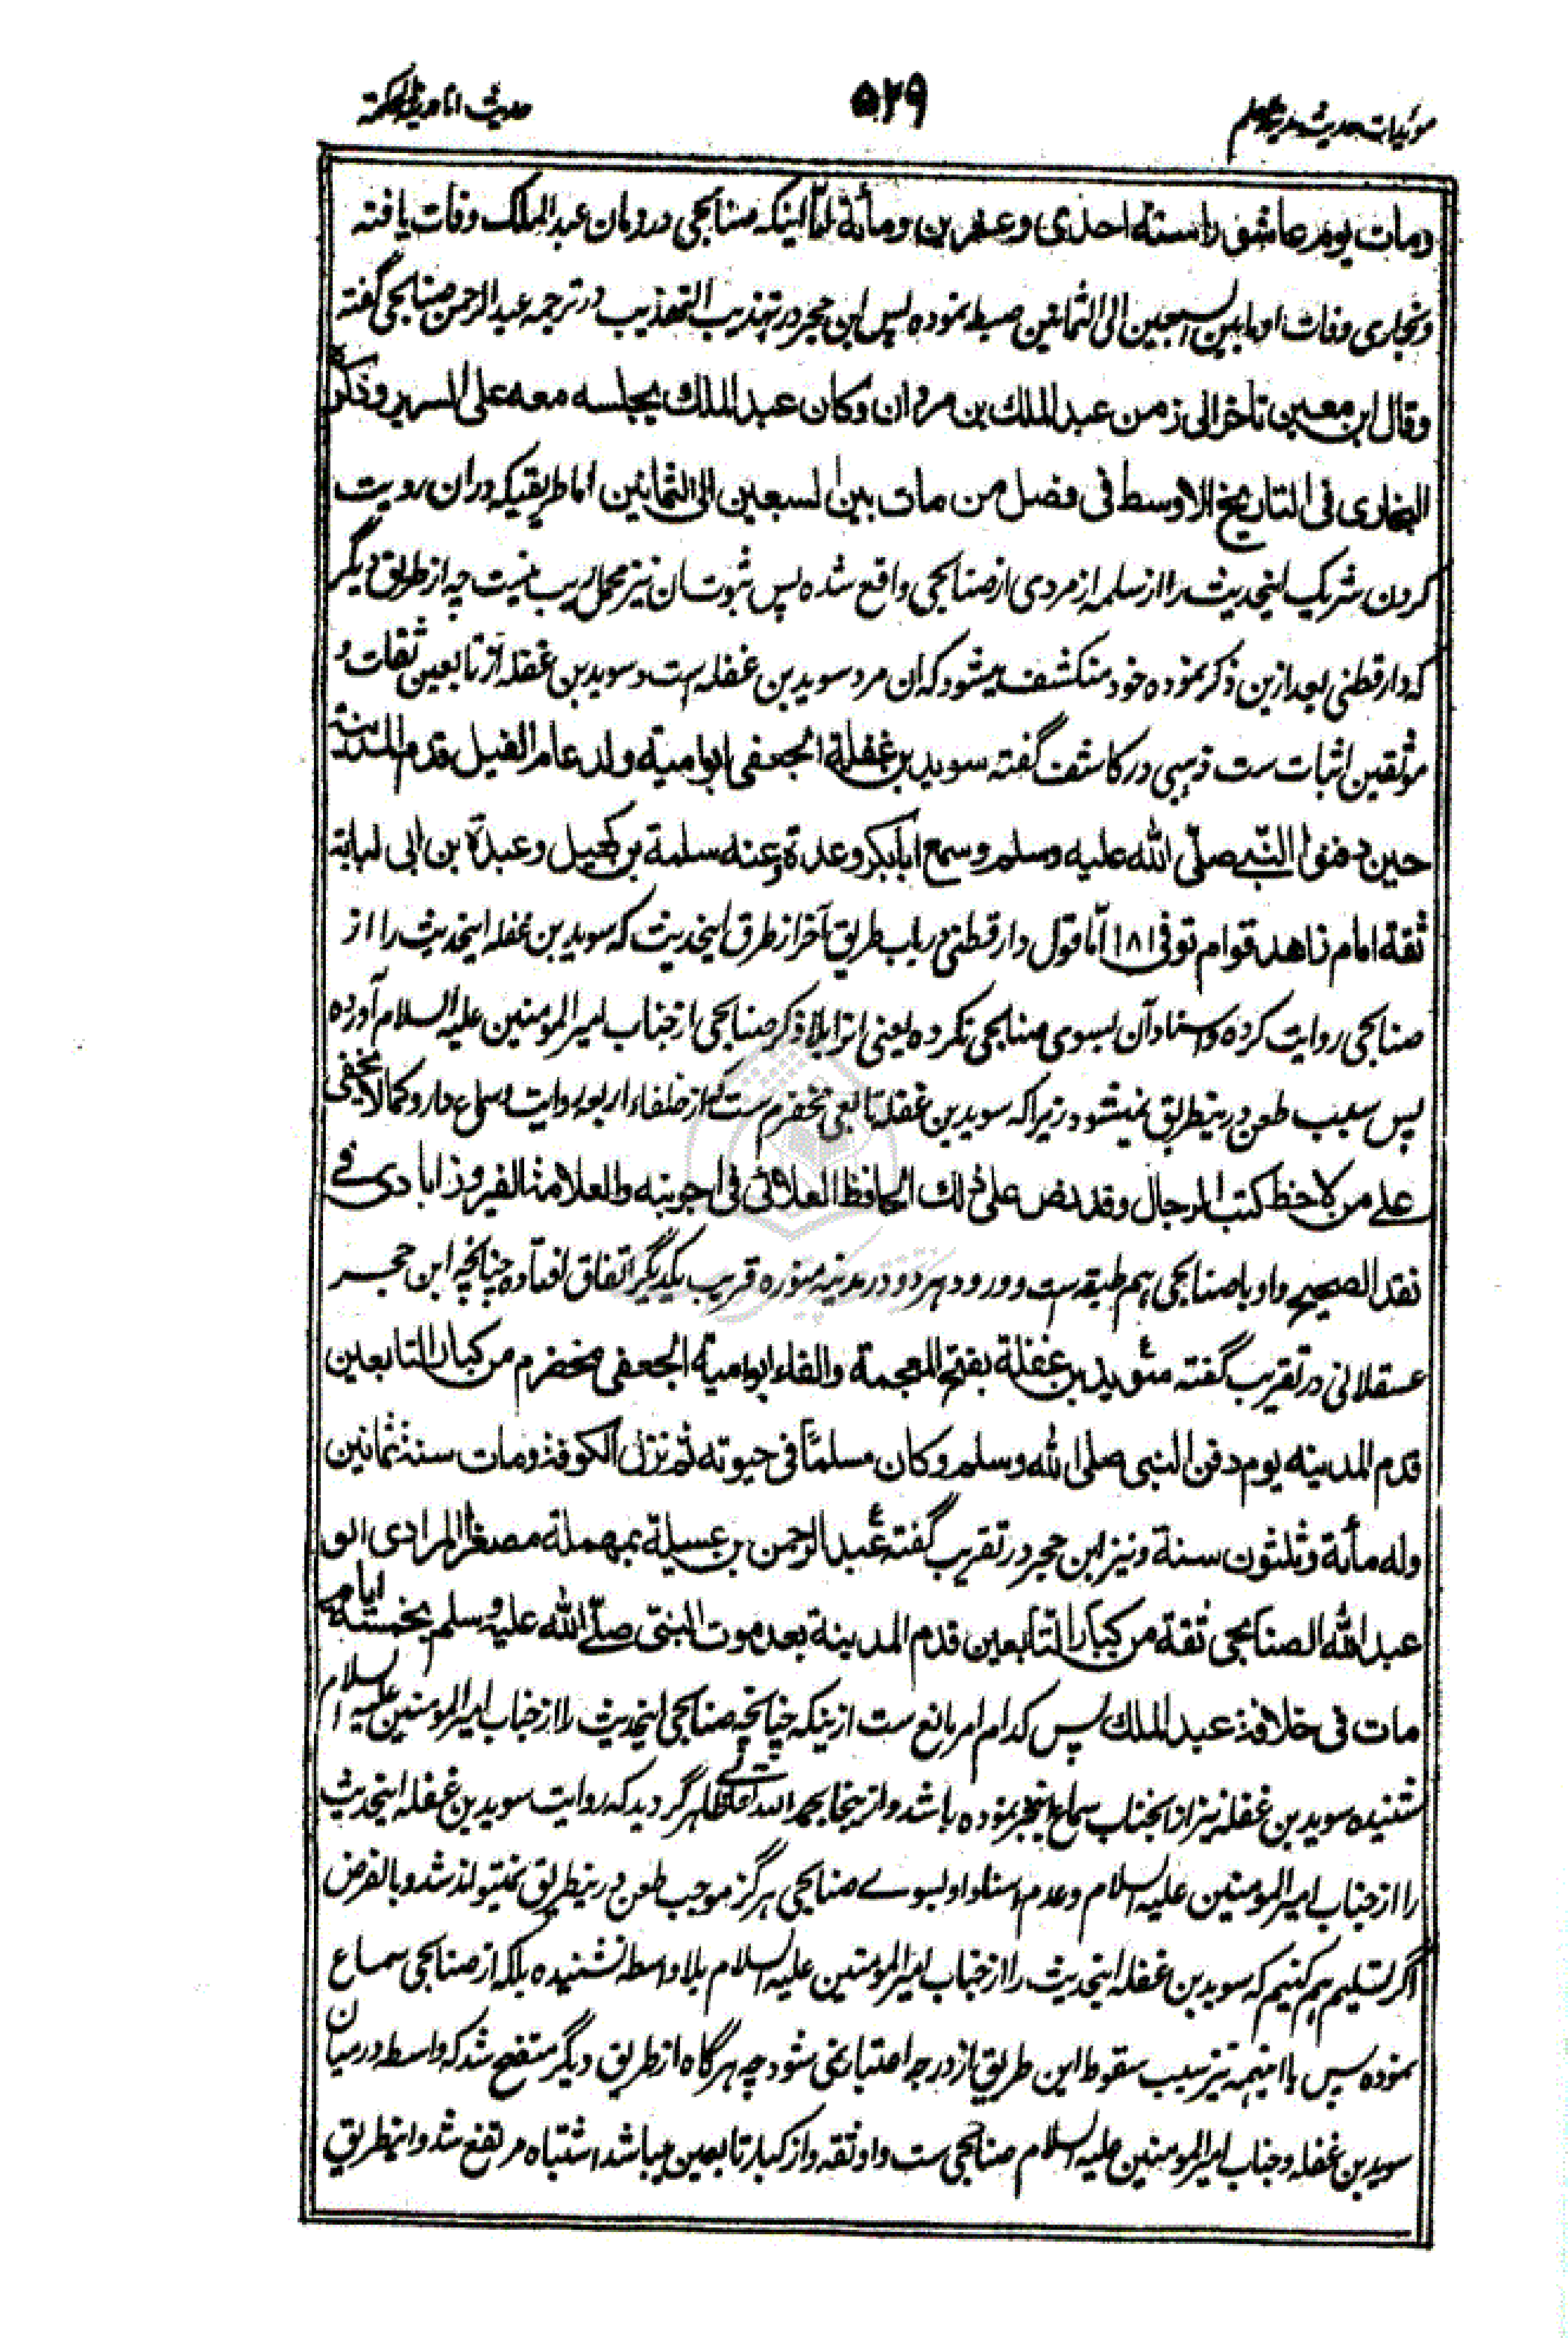 مؤیدات حدیث مدینة العلم
۵۲۹
حدیث انا مدینة الحکمة
ومات یوم عاشوراء سنة احدی وعشرین ومأة اما اینکه صنابحی در زمان عبد الملک وفات یافته
وبخاری وفات او ما بین السبعین الی الثمانین ضبط نموده پس ابن حجر در تهذیب التهذیب در ترجمه عبد الرحمن صنابحی گفته
وقال ابن معین تأخر الی زمن عبد الملك بن مروان وکان عبد الملك یجلسه معه علی السریر وذکره
البخاری فی التاریخ الاوسط فی فصل من مات بین السبعین الی الثمانین اما طریقیکه دران روایت
کردن شریک اینحدیث را از سلمه از مردی از صنابحی واقع شده پس ثبوت آن نیز محل ریب نیست چه از طریق دیگر
که دارقطنی بعد ازین ذکر نموده خود منکشف میشود که ان مرد سوید بن غفله است وسوید بن غفله از تابعین ثقات و
موثقین اثبات ست ذهبی در کاشف گفته سوید بن غفلة الجعفی ابو امیة ولد عام الفیل قدم المدینة
حین دفنوا النبی صلی الله علیه وسلم وسمع ابابکر وعدة وعنه سلمة بن کهیل وعبدة بن ابی لبابة
ثقة امام زاهد قوام توفی ۸۱ اما قول دارقطنی در باب طریق آخر از طرق اینحدیث که سوید بن غفله اینحدیث را از
صنابحی روایت کرده واسناد آن بسوی صنابحی نکرده یعنی انرا بلا ذکر صنابحی از جناب امیر المومنین علیه السلام آورده
پس سبب طعن درینطریق نمیشود زیرا که سوید بن غفله تابعی مخضرم ست که از خلفاء اربعه روایت وسماع دارد کما لا یخفی
علی من لاحظ کتب الرجال وقد نص علی ذلك الحافظ العلائی فی اجوبته والعلامة الفیروزابادی فی
نقد الصحیح واو با صنابحی هم طبقه ست وورود هر دو در مدینه منوره قریب یکدیگر اتفاق افتاده چنانچه ابن حجر
عسقلانی در تقریب گفته سوید بن غفلة بفتح المعجمة والفاء ابو امیة الجعفی مخضرم من کبار التابعین
قدم المدینه یوم دفن النبی صلی الله وسلم وکان مسلماً فی حیوته ثم نزل الکوفة ومات سنة ثمانین
وله مأة وثلثون سنة ونیز ابن حجر در تقریب گفته عبد الرحمن بن عسیلة بمهملة مصغر المرادی ابو
عبد الله الصنابحی ثقة من کبار التابعین قدم المدینة بعد موت النبی صلی الله علیه وسلم بخمسة ایام
مات فی خلافة عبد الملك پس کدام امر مانع ست ازینکه چنانچه صنابحی اینحدیث را از جناب امیر المومنین علیه السلام
شنیده سوید بن غفله نیز از انجناب سماع اینخبر نموده باشد و ازینجا بحمد الله تعالی ظاهر گردید که روایت سوید بن غفله اینحدیث
را از جناب امیر المومنین علیه السلام وعدم اسناد او بسوی صنابحی هرگز موجب طعن درینطریق نمیتواند شد وبالفرض
اگر تسلیم هم کنیم که سوید بن غفله اینحدیث را از جناب امیر المومنین علیه السلام بلا واسطه نشنیده بلکه از صنابحی سماع
نموده پس با اینهمه نیز سبب سقوط این طریق از درجه اعتبار نمی شود چه هرگاه از طریق دیگر متضح شد که واسطه درمیان
سوید بن غفله وجناب امیر المومنین علیه السلام صنابحی ست واو ثقه واز کبار تابعین میباشد اشتباه مرتفع شد واینطریق